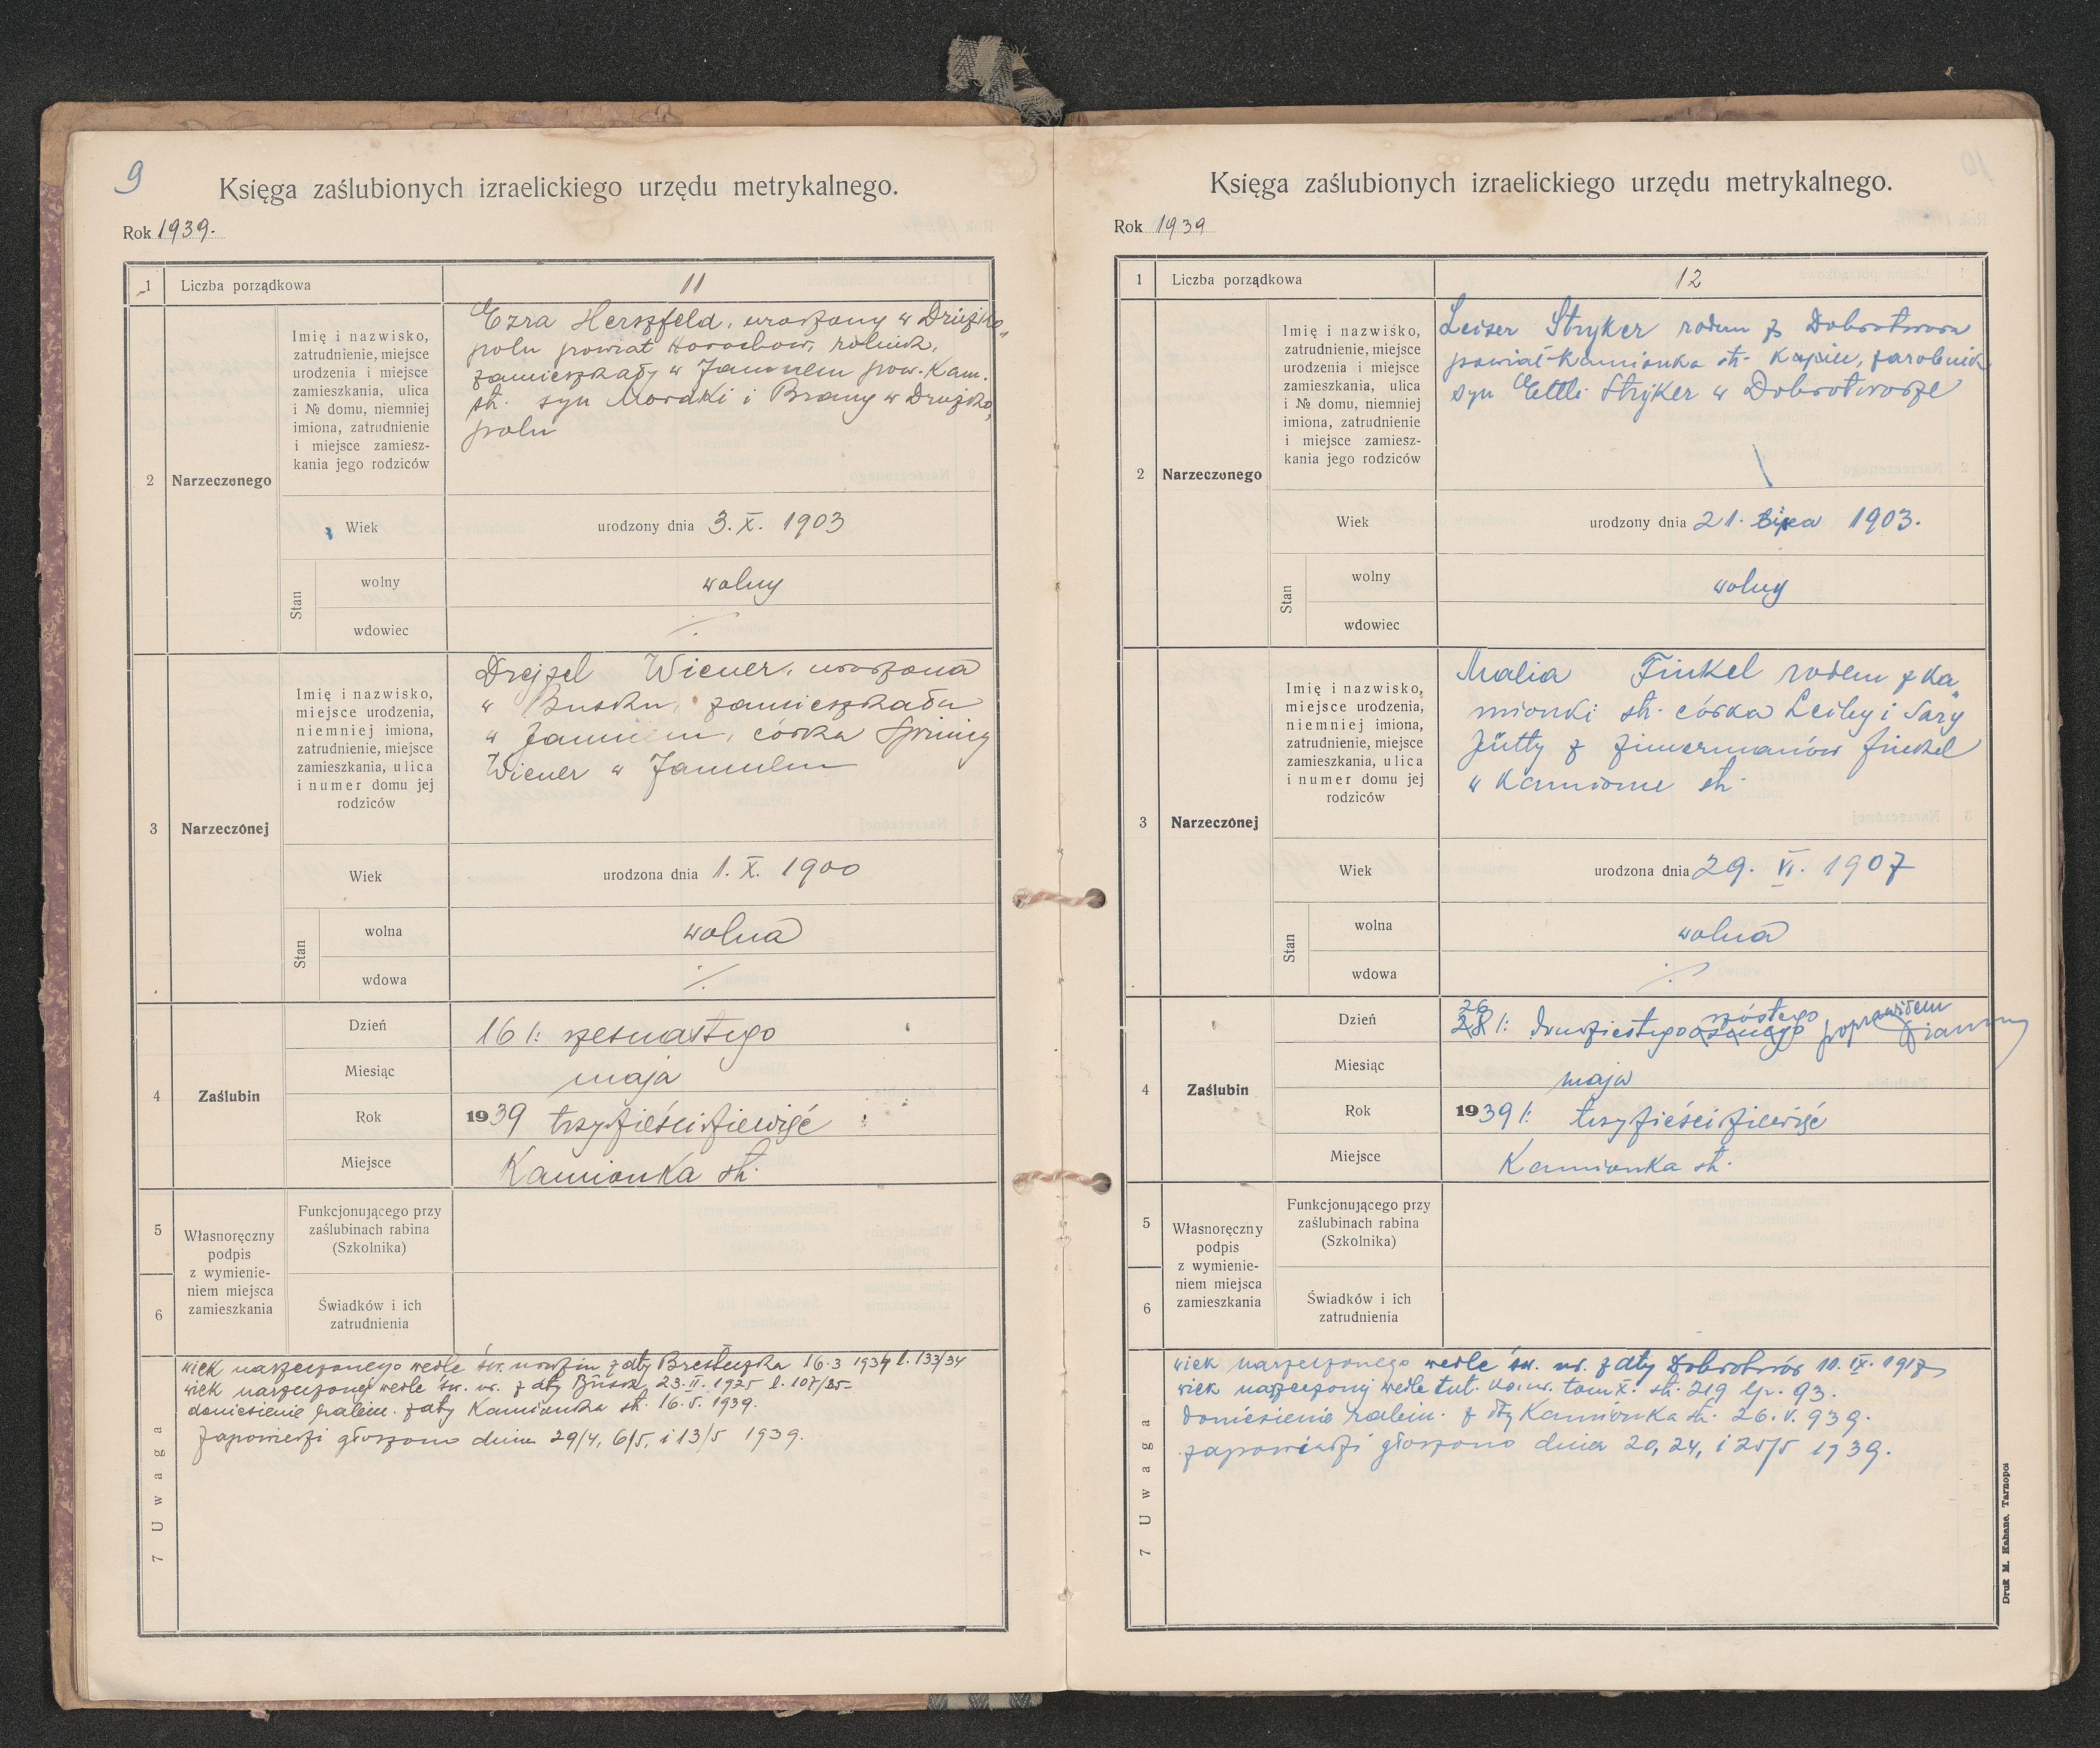 9
Księga zaślubionych izraelickiego urzędu metrykalnego.
Rok 1939.
1 Liczba porządkowa 11
2 Narzeczonego
Imię i nazwisko,
zatrudnienie, miejsce
urodzenia i miejsce
zamieszkania, ulica
i № domu, niemniej
imiona, zatrudnienie
i miejsce zamiesz-
kania jego rodziców
Ezra Herszfeld, urodzony w Drużko„
polu powiat Horochow, rolnik,
zamieszkały w Jamnem pow. Kam.
str. syn Mordki i Brany w Drużko„
polu
Wiek urodzony dnia 3. X. 1903
Stan
wolny wolny
wdowiec
3 Narzeczónej
Imię i nazwisko,
miejsce urodzenia,
niemniej imiona,
zatrudnienie, miejsce
zamieszkania, ulica
i numer domu jej
rodziców
Drejzel Wiener, urodzona
w Busku, zamieszkała
w Jamnem, córka Sprincy
Wiener w Jamnem
Wiek urodzona dnia 1. X. 1900
Stan
wolna wolna
wdowa
4 Zaślubin
Dzień 16 /: szesnastego
Miesiąc maja
Rok 1939 trzydzieści dziewięć
Miejsce Kamionka str.
5 6
Własnoręczny
podpis
z wymienie-
niem miejsca
zamieszkania
Funkcjonującego przy
zaślubinach rabina
(Szkolnika)
Świadków i ich
zatrudnienia
7 Uwaga
wiek narzeczonego wedle św. urodzin z daty Bresteczka 16.3 1934 l. 133/34
wiek narzeczonej wedle św. ur. z daty Busk 23.II.1925 l. 107/25
doniesienie rabin. z daty Kamionka str. 16.5. 1939.
zapowiedzi głoszono dnia 29/4, 6/5, i 13/5 1939.
Księga zaślubionych izraelickiego urzędu metrykalnego.
Rok 1939
1 Liczba porządkowa 12
2 Narzeczonego
Imię i nazwisko,
zatrudnienie, miejsce
urodzenia i miejsce
zamieszkania, ulica
i № domu, niemniej
imiona, zatrudnienie
i miejsce zamiesz-
kania jego rodziców
Leiser Stryker rodem z Dobrotwora
powiat Kamionka str. zarobnik
syn Ettli Stryker w Dobrotworze
Wiek urodzony dnia 21. lipca 1903.
Stan
wolny wolny
wdowiec
3 Narzeczónej
Imię i nazwisko,
miejsce urodzenia,
niemniej imiona,
zatrudnienie, miejsce
zamieszkania, ulica
i numer domu jej
rodziców
Malia Finkel rodem z Ka„
mionki str. córka Leiby i Sary
Jütty z Zimermanów Finkel
w Kamionce str.
Wiek urodzona dnia 29. VI. 1907
Stan
wolna wolna
wdowa
4 Zaślubin
26 szóstego poprawiłem
Dzień 28 /: dwudziestego ósmego
Miesiąc maja
Rok 1939 /: trzydzieści dziewięć
Miejsce Kamionka str.
5 6
Własnoręczny
podpis
z wymienie-
niem miejsca
zamieszkania
Funkcjonującego przy
zaślubinach rabina
(Szkolnika)
Świadków i ich
zatrudnienia
7 Uwaga
wiek narzeczonego wedle św. ur. z daty Dobrotwór 11.IX.1917
wiek narzeczonej wedle tut. tom X. str. 219 lp. 93.
doniesienie rabin. z dty Kamionka str. 26. V. 939.
zapowiedzi głoszono dnia 20, 24, i 25/5 1939.
Druk M. Kahane, Tarnopol